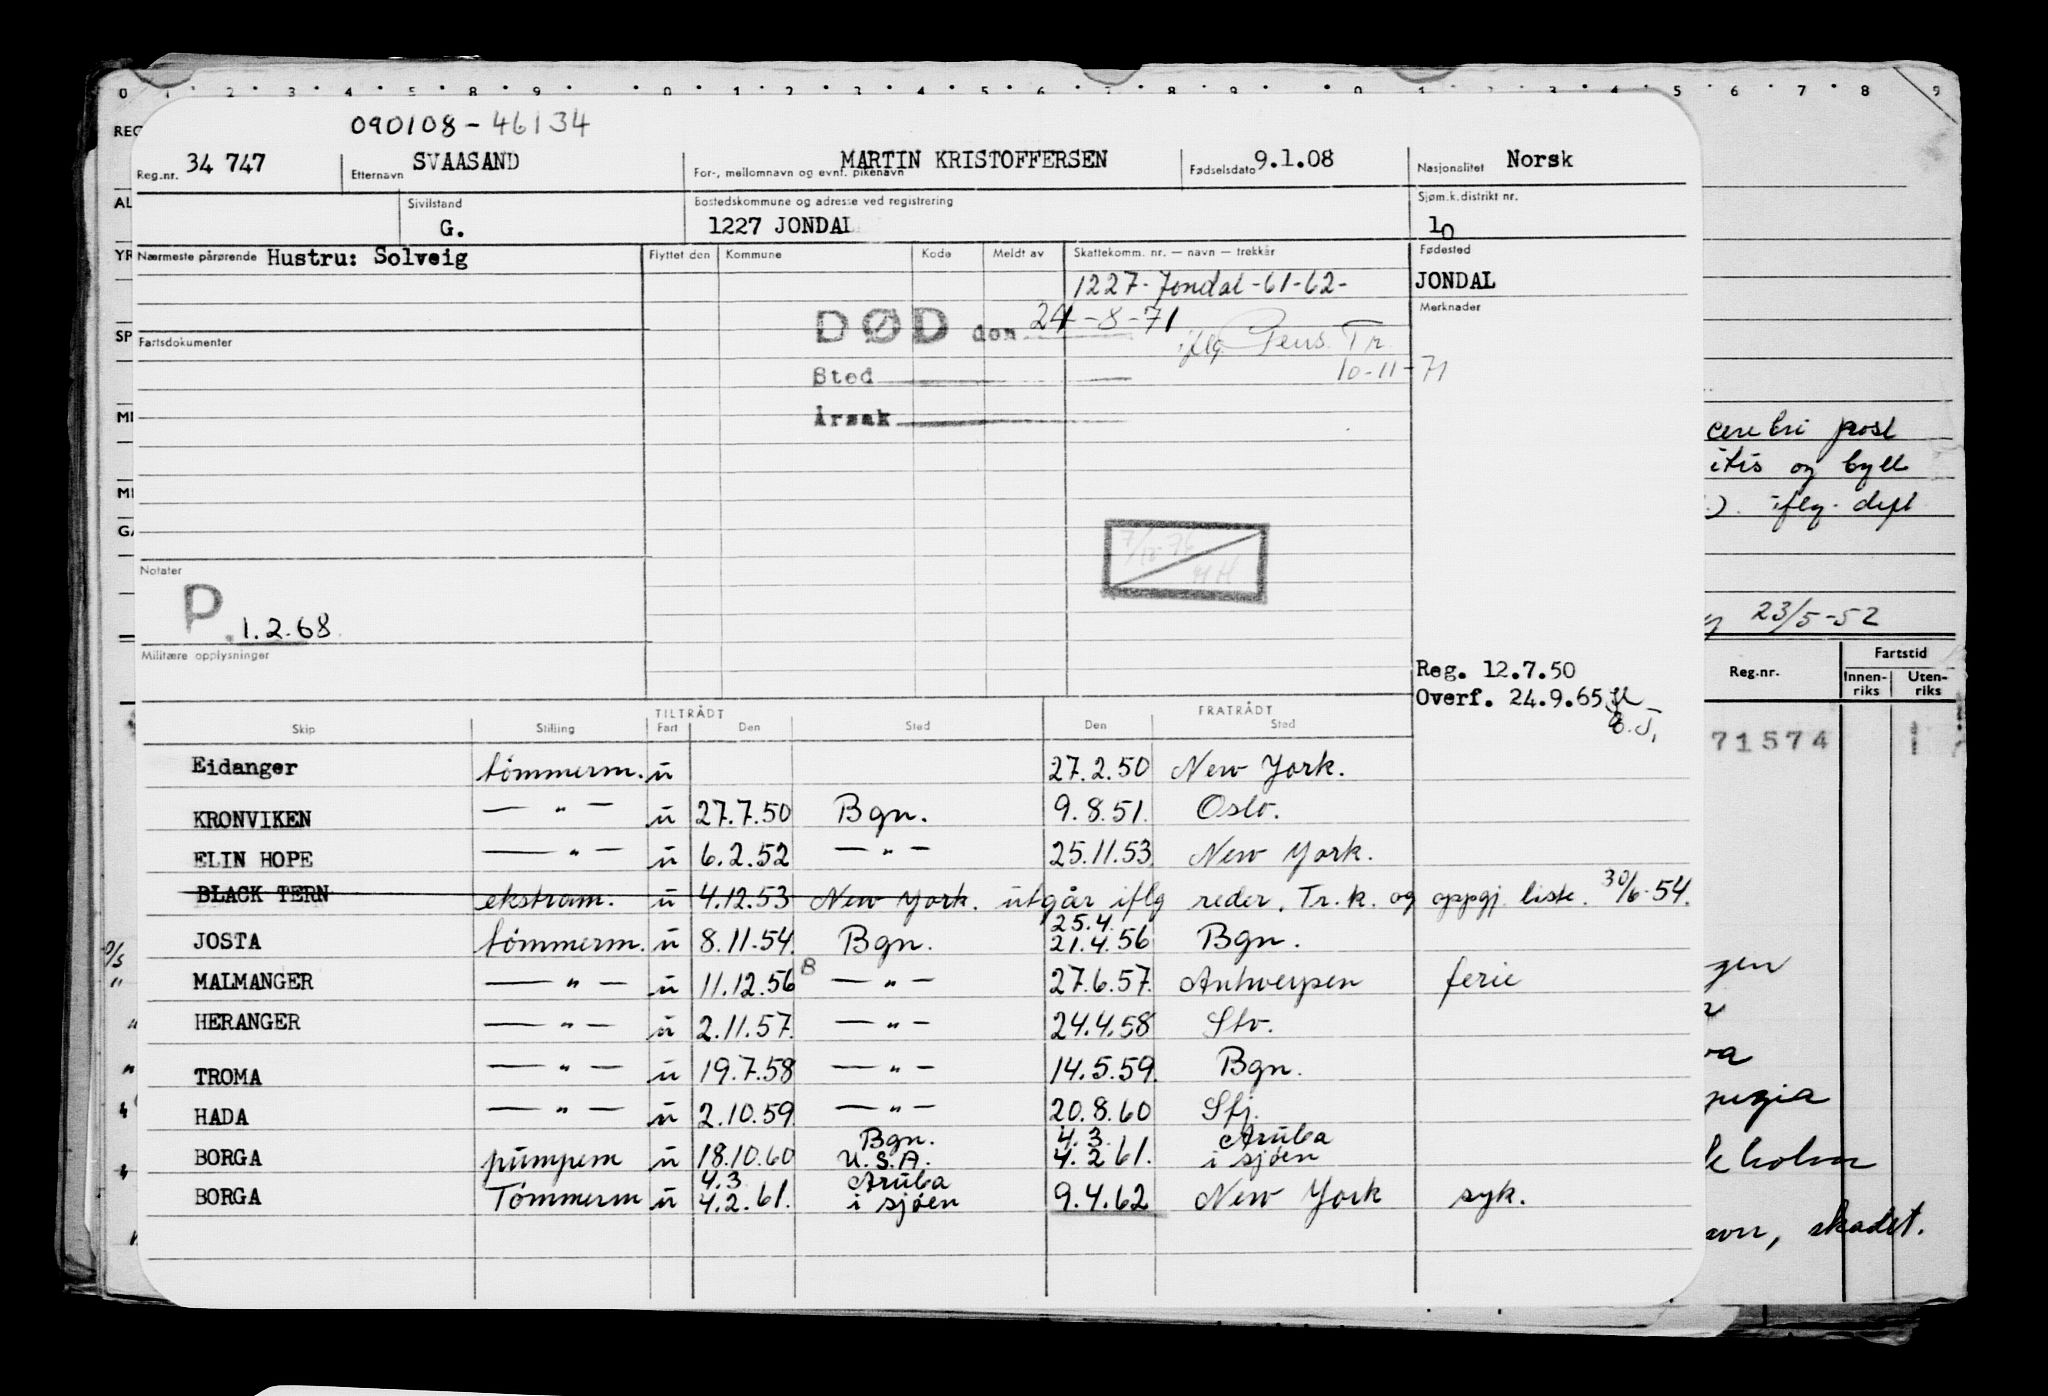 0 1 2 3 4 5 8 9 0 1 2 3 4 5 6 7 8 9 0 1 2 3 4 5 6 7 8 9
090108-46134
REG
Reg.nr. 34 747 Etternavn SVAASAND For-, mellomnavn og evnt. pikenavn MARTIN KRISTOFFERSEN Fødselsdato 9.1.08 Nasjonalitet Norsk
AL Sivilstand G. Bostedskommune og adresse ved registrering 1227 JONDAL Sjøm.k.distrikt nr. 10
YR Nærmeste pårørende Hustru: Solveig Flyttet den Kommune Kode Meldt av Skattekomm. nr. — navn — trekkår Fødested
1227-Jondal-61-62- JONDAL
Merknader
DØD den 24-8-71
SP Fartsdokumenter iflg. Pens. Tr.
Sted 10-11-71
MI Årsak
cerebri post
itis og byll
MI
iflg. dept
GA
Notater
P. 1.2.68
23/5-52
Militære opplysninger
Reg. 12.7.50
Overf. 24.9.65
Reg.nr. Fartstid
Innen-riks Uten-riks
TILTRÅDT FRATRÅDT
Skip Stilling Fart Den Sted Den Sted
71574
Eidanger tömmerm. u 27.2.50 New York.
KRONVIKEN — " — u 27.7.50 Bgn. 9.8.51. Oslo.
ELIN HOPE — " — u 6.2.52 — " — 25.11.53. New York.
BLACK TERN ekstram. u 4.12.53 New York. utgår iflg reder, Tr.k. og oppgj. liste. 30/6-54.
25.4.
JOSTA tömmerm. u 8.11.54. Bgn. 21.4.56 Bgn.
MALMANGER — " — u 11.12.56 B — " — 27.6.57. Antwerpen ferie
HERANGER — " — u 2.11.57. — " — 24.4.58 Stv.
TROMA — " — u 19.7.58 — " — 14.5.59. Bgn.
HADA — " — u 2.10.59 — " — 20.8.60 Sfj.
Bgn. 4.3. Aruba
BORGA pumpem u 18.10.60 U.S.A. 4.2 61. i sjøen
4.3 Aruba
BORGA Tömmerm u 4.2.61. i sjøen 9.4.62 New York syk.
avn, skadet.